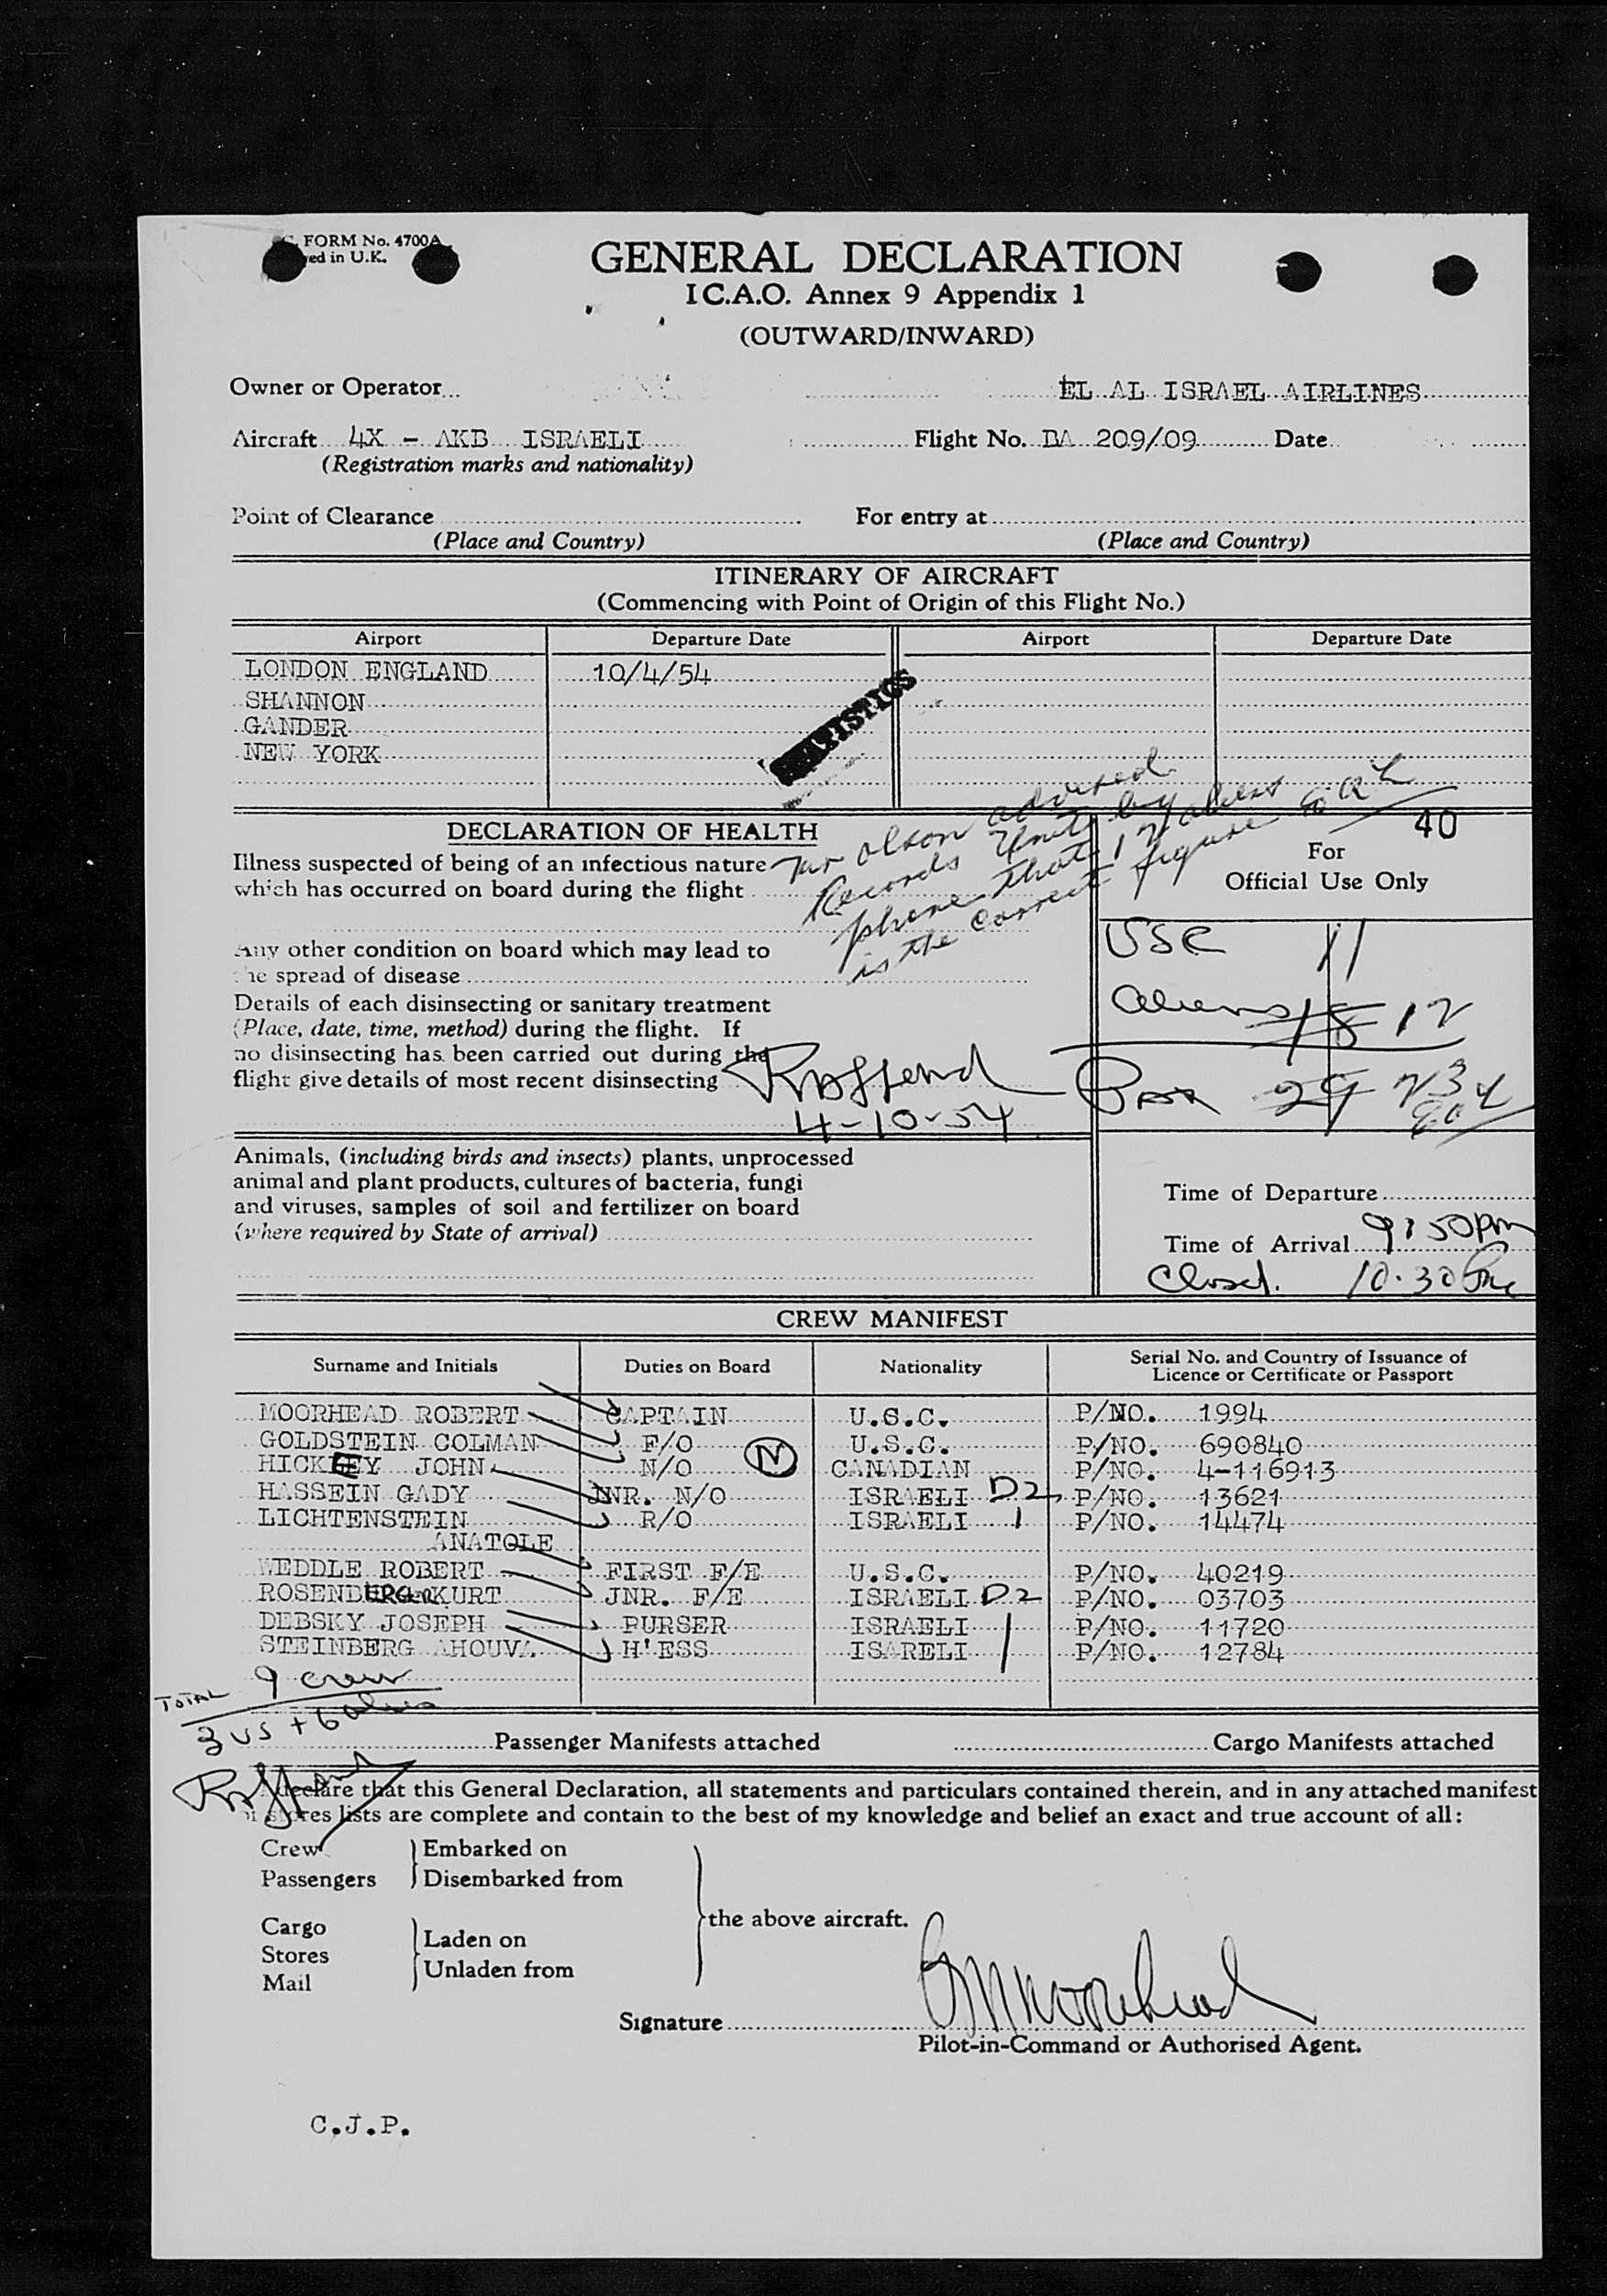 FORM No. 4700A
ed in U.K.
GENERAL DECLARATION
I C.A.O. Annex 9 Appendix 1
(OUTWARD/INWARD)
Owner or Operator EL AL ISRAEL AIRLINES
Aircraft 4X - AKB ISRAELI Flight No. BA 209/09 Date
(Registration marks and nationality)
Point of Clearance For entry at
(Place and Country) (Place and Country)
ITINERARY OF AIRCRAFT
(Commencing with Point of Origin of this Flight No.)
Airport Departure Date Airport Departure Date
LONDON ENGLAND 10/4/54
SHANNON
GANDER
NEW YORK
STATISTICS
Mr Olson advised
Records Unit by
phone that 12 aliens
is the correct figure
40
DECLARATION OF HEALTH
Illness suspected of being of an infectious nature
which has occurred on board during the flight
Any other condition on board which may lead to
the spread of disease
Details of each disinsecting or sanitary treatment
(Place, date, time, method) during the flight. If
no disinsecting has been carried out during the
flight give details of most recent disinsecting
4-10-54
For
Official Use Only
USC 11
Aliens 18 12
Pax 29 23
Animals, (including birds and insects) plants, unprocessed
animal and plant products, cultures of bacteria, fungi
and viruses, samples of soil and fertilizer on board
(where required by State of arrival)
Time of Departure
Time of Arrival 9:50pm
Closed. 10.30 Pm
CREW MANIFEST
Surname and Initials Duties on Board Nationality Serial No. and Country of Issuance of
Licence or Certificate or Passport
MOORHEAD ROBERT CAPTAIN U.S.C. P/NO. 1994
GOLDSTEIN COLMAN F/O U.S.C. P/NO. 690840
HICKEY JOHN N/O N CANADIAN P/NO. 4-116913
HASSEIN GADY JNR. N/O ISRAELI D2 P/NO. 13621
LICHTENSTEIN R/O ISRAELI 1 P/NO. 14474
ANATOLE
WEDDLE ROBERT FIRST F/E U.S.C. P/NO. 40219
ROSENBERGER KURT JNR. F/E ISRAELI D2 P/NO. 03703
DEBSKY JOSEPH PURSER ISRAELI P/NO. 11720
STEINBERG AHOUVA H'ESS ISARELI P/NO. 12784
TOTAL 9 crew
3 US + 6 aliens
Passenger Manifests attached Cargo Manifests attached
declare that this General Declaration, all statements and particulars contained therein, and in any attached manifest
stores lists are complete and contain to the best of my knowledge and belief an exact and true account of all:
Crew Embarked on
Passengers Disembarked from
the above aircraft.
Cargo
Stores Laden on
Mail Unladen from
Signature
Pilot-in-Command or Authorised Agent.
C.J.P.